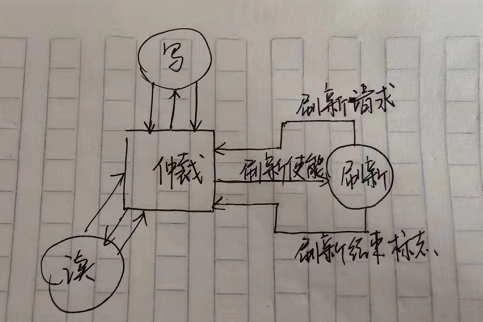 写
刷新请求
仲裁
刷新使能
刷新
读
刷新结束标志